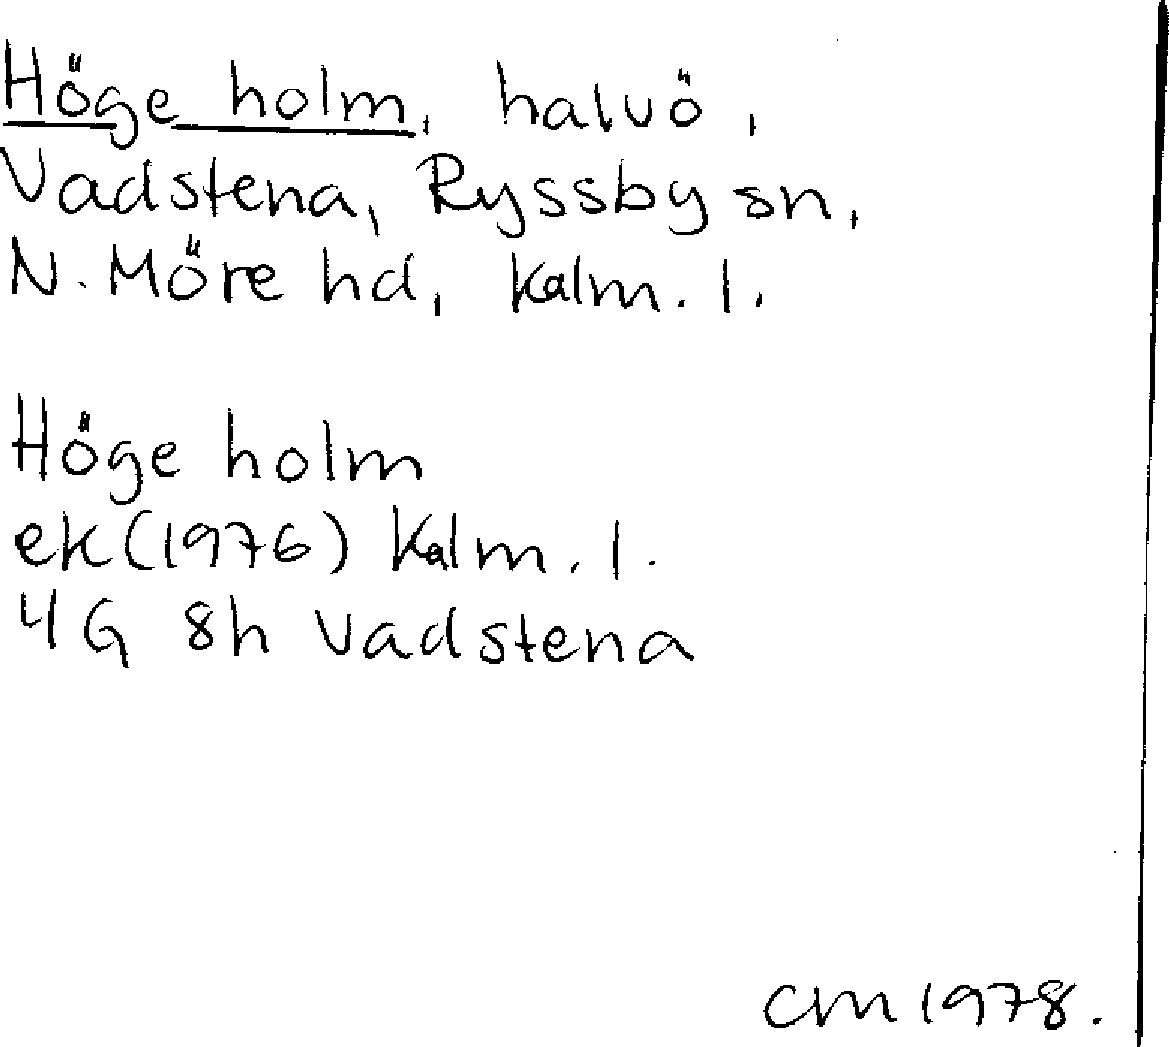 Höge holm, halvö,
Vadstena, Ryssby sn,
N. Möre hd, Kalm. l.
Höge holm
ek (1976) Kalm. l.
4G 8h Vadstena
CM 1978.